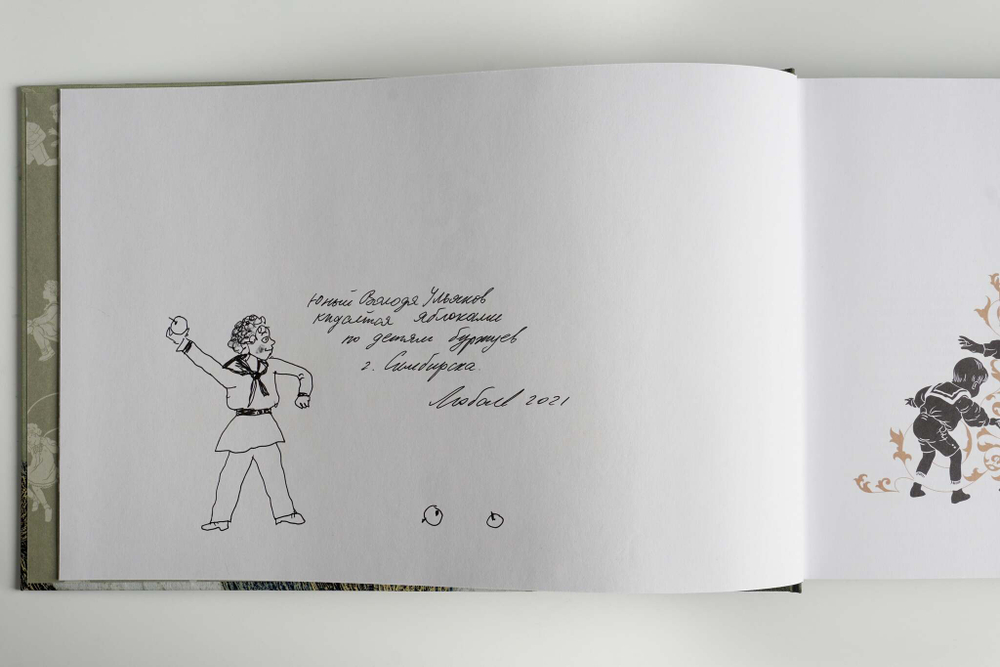 Юный Володя Ульянов
кидается яблоками
по детям буржуев
г. Симбирска.
Любаев 2021